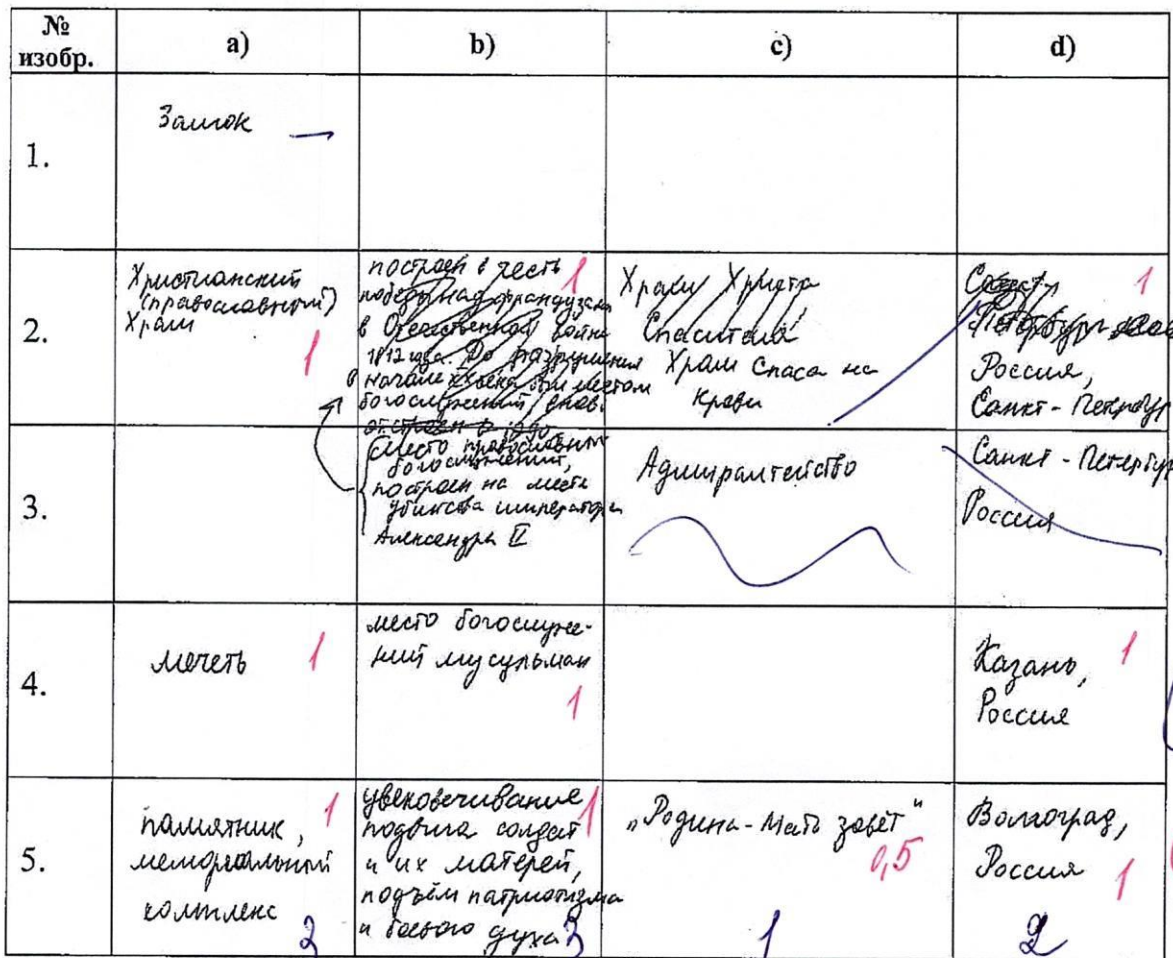 № изобр. a) b) c) d)
1.
Замок
2.
Христианский
(православный)
Храм
1
построен в честь 1
победы над французами
в Отечественной войне
1812 года. До разрушения
в начале XX века был местом
богослужений, снова
отстроен в 1990
Храм Христа
Спасителя
Храм Спаса на
Крови
1
Санкт-
Петербург
Россия,
Санкт-Петербург
3.
Место православных
богослужений,
построен на месте
убийства императора
Александра II
Адмиралтейство
Санкт-Петербург
Россия
4.
мечеть 1
место богослуже-
ний мусульман
1
Казань, 1
Россия
5.
памятник, 1
мемориальный
комплекс
3
увековечивание 1
подвига солдат
и их матерей,
подъём патриотизма
и боевого духа 3
„Родина-Мать зовёт"
0,5
1
Волгоград,
Россия 1
2